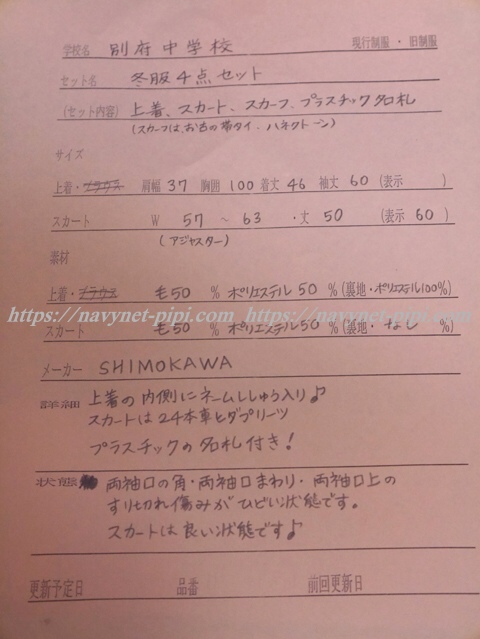 学校名 別府中学校 現行制服・旧制服
セット名 冬服4点セット
(セット内容) 上着、スカート、スカーフ、プラスチック名札
(スカーフは、お古の帯タイ、ハネクトーン)
サイズ
上着・ブラウス 肩幅 37 胸囲 100 着丈 46 袖丈 60 (表示 )
スカート W 57 ~ 63 ・丈 50 (表示 60)
(アジャスター)
素材
上着・ブラウス 毛50 % ポリエステル 50 % (裏地・ポリエステル100%)
https://navynet-pipi.com https://navynet-pipi.com
スカート 毛50 % ポリエステル50 % (裏地・なし %)
メーカー SHIMOKAWA
詳細 上着の内側にネームししゅう入り♪
スカートは24本車ヒダプリーツ
プラスチックの名札付き!
状態 両袖口の角・両袖口まわり・両袖口上の
すり切れ傷みがひどい状態です。
スカートは良い状態です♪
更新予定日 品番 前回更新日